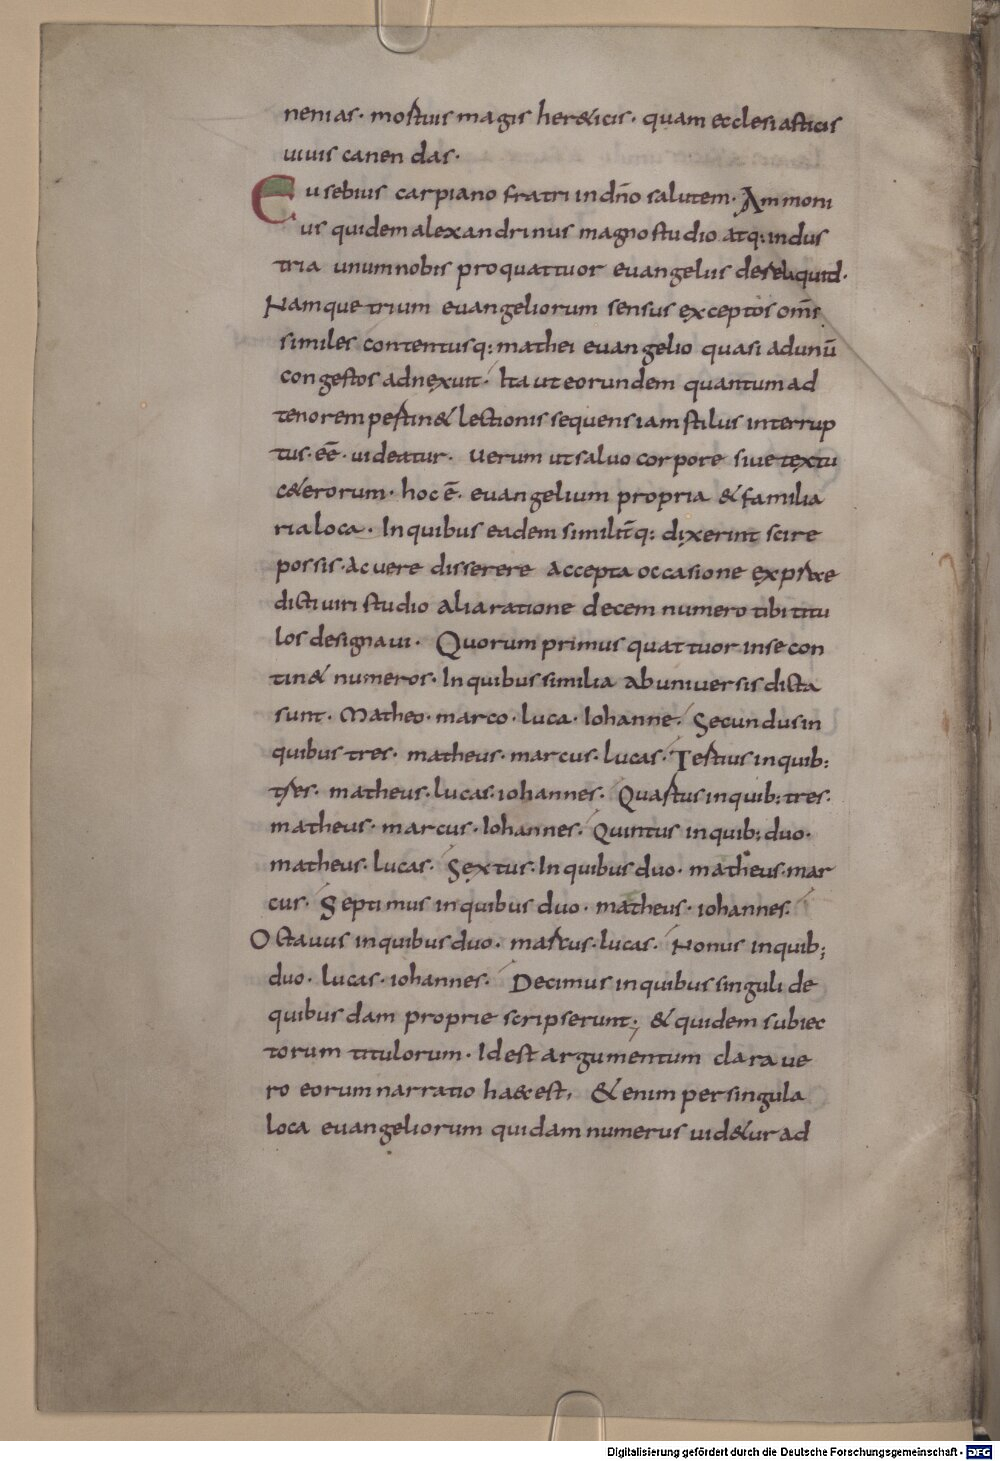 nenias· mortuis magis her&icis· quam ecclesiasticis
uiuis canen das·
Eusebius carpiano fratri in dño salutem· Ammoni
us quidem alexandrinus magno studio atq; indus
tria unum nobis pro quattuor euangeliis dereliquid·
Namque trium euangeliorum sensus exceptos oms̄
similes contentusq; mathei euangelio quasi ad unū
congestos adnexuit· Ita ut eorundem quantum ad
tenorem pertin& lectionis sequens iam stilus interrup
tus· eē· uideatur· Verum ut saluo corpore siue textu
c&erorum· hoc ē· euangelium propria & familia
ria loca· In quibus eadem similit̄q; dixerint scire
possis· ac uere disserere accepta occasione ex prae
dicti uiri studio alia ratione decem numero tibi titu
los designaui· Quorum primus quattuor in se con
tin& numeros· In quibus similia ab uniuersis dicta
sunt· Matheo· marco· luca· Iohanne· Secundus in
quibus tres· matheus· marcus· lucas· Tertius in quib;
tres· matheus· lucas· iohannes· Quartus in quib; tres·
matheus· marcus· Iohannes· Quintus in quib; duo·
matheus· lucas· Sextus· In quibus duo· matheus· mar
cus· Septimus in quibus duo· matheus· iohannes·
Octauus in quibus duo· marcus· lucas· Nonus in quib;
duo· lucas· iohannes· Decimus in quibus singuli de
quibus dam proprie scripserunt; & quidem subiec
torum titulorum· Id est argumentum clara ue
ro eorum narratio haec est, &enim per singula
loca euangeliorum quidam numerus uid&ur ad
Digitalisierung gefördert durch die Deutsche Forschungsgemeinschaft - DFG